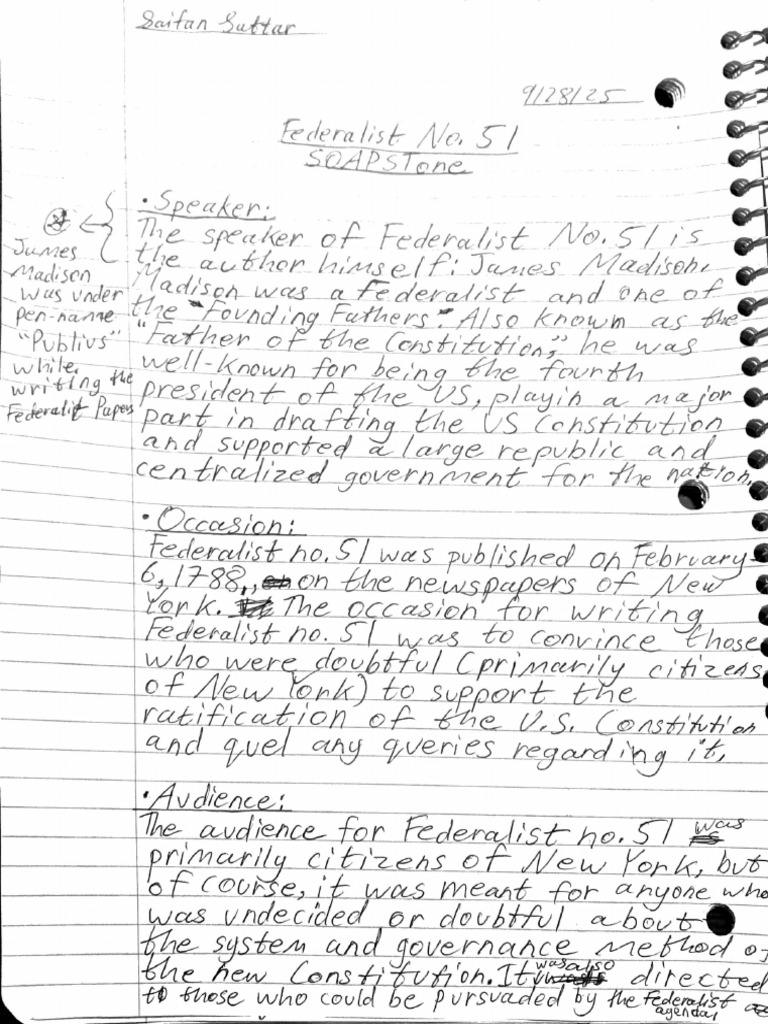 Saifan Suttar
9/28/25
Federalist No. 51
SOAPSTone
• Speaker:
The speaker of Federalist No. 51 is
the author himself: James Madison.
Madison was a Federalist and one of
the "Founding Fathers". Also known as the
"Father of the Constitution," he was
well-known for being the fourth
president of the US, playin a major
part in drafting the US Constitution
and supported a large republic and
centralized government for the nation.
James
Madison
was under
pen-name
"Publius"
while
writing the
Federalit Papers
• Occasion:
Federalist no. 51 was published on February
6, 1788, on the newspapers of New
York. The occasion for writing
Federalist no. 51 was to convince those
who were doubtful (primarily citizens
of New York) to support the
ratification of the U.S. Constitution
and quel any queries regarding it.
• Audience:
The audience for Federalist no. 51 was
primarily citizens of New York, but
of course, it was meant for anyone who
was undecided or doubtful about
the system and governance method of
the new Constitution. It was also directed
to those who could be pursuaded by the Federalist
agenda.